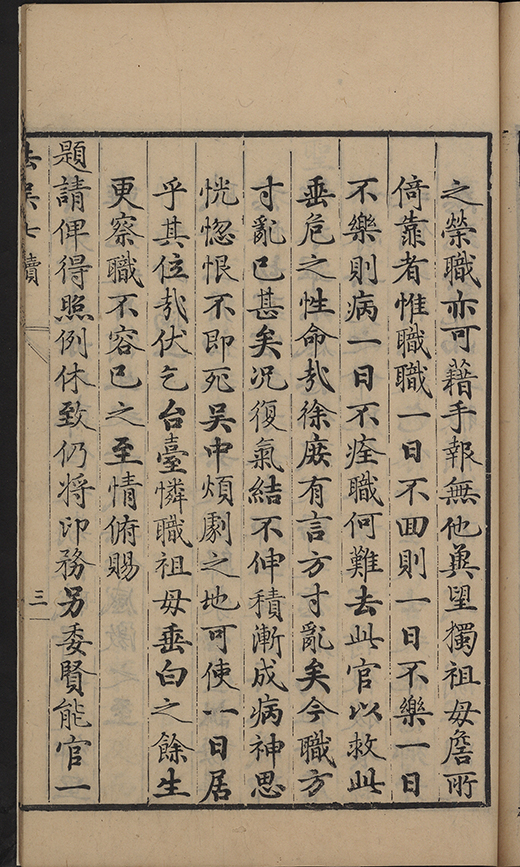 之榮職亦可藉手報無他冀望獨祖毋詹所
倚靠者惟職職一日不回則一日不樂一日
不樂則病一日不痊職何難去此官以救此
垂危之性命㢤徐庶有言方寸亂矣今職方
寸亂已甚矣況復氣結不伸積漸成病神思
恍惚恨不即死吴中煩劇之地可使一日居
乎其位㢤伏乞台臺憐職祖毋垂白之餘生
更察職不容已之至情俯賜
題請俾得照例休致仍將印務另委賢能官一
去吴七牘
三